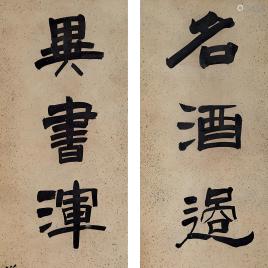 名酒過
異書渾